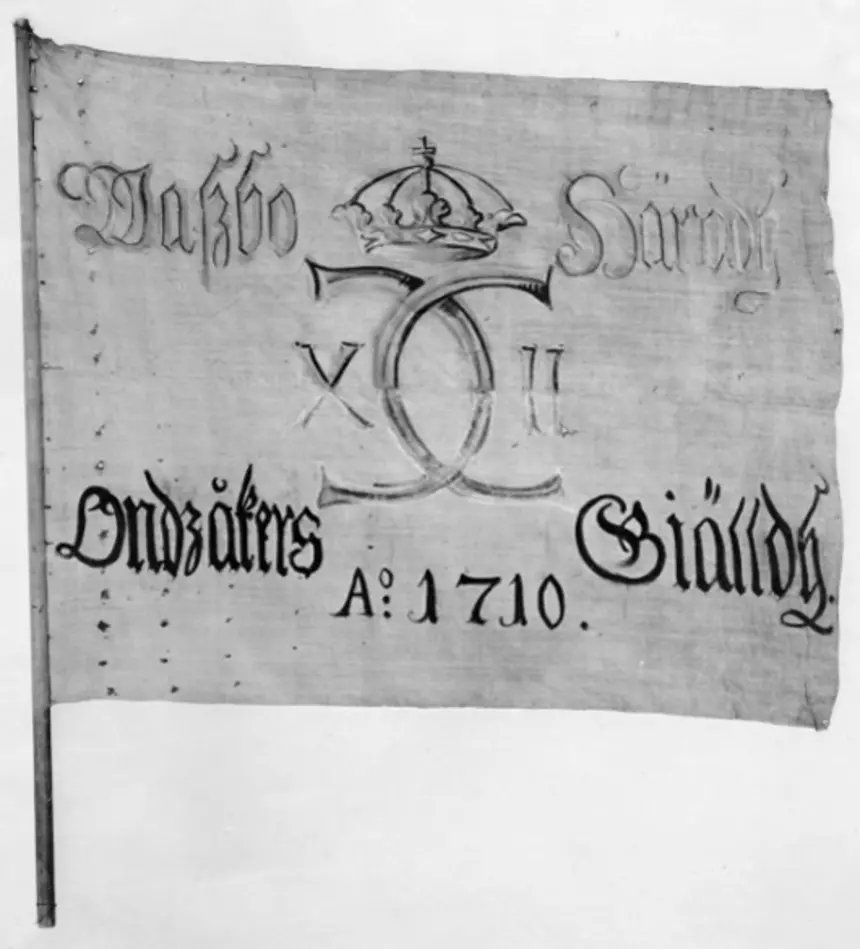 Waßbo Härodh
X II
Ondzåkers Giälldh.
Ao: 1710.